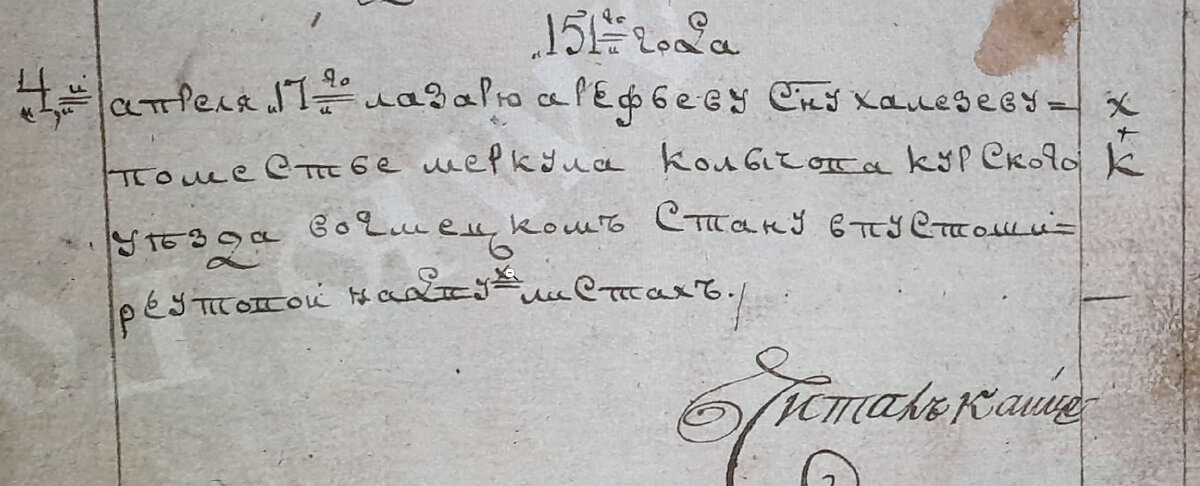 151го года
4й апреля 17го лазарю арефьеву Сну халезеву= х
поместье меркула колычова курского К
уезда вочмецкомъ Стану впустоши=
реутовой надвух листахъ. —
Читалъ каще